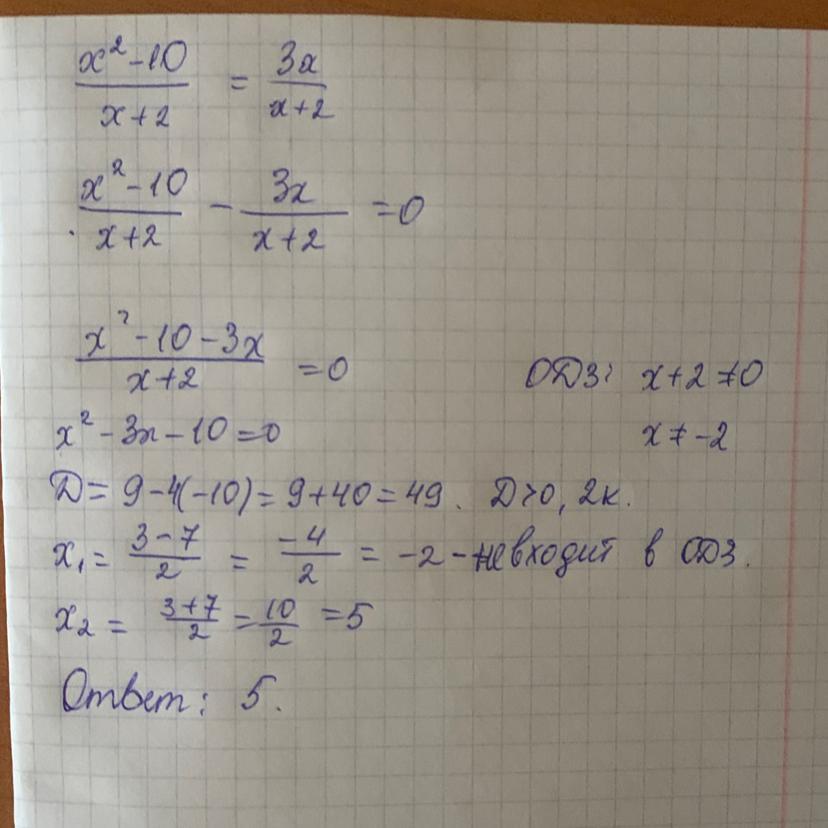 x² - 10 / x + 2 = 3x / x + 2
x² - 10 / x + 2 - 3x / x + 2 = 0
x² - 10 - 3x / x + 2 = 0
ОДЗ: x + 2 ≠ 0
x² - 3x - 10 = 0
x ≠ -2
D = 9 - 4(-10) = 9 + 40 = 49. D > 0, 2к.
x₁ = 3 - 7 / 2 = -4 / 2 = -2 - не входит в ОДЗ.
x₂ = 3 + 7 / 2 = 10 / 2 = 5
Ответ: 5.